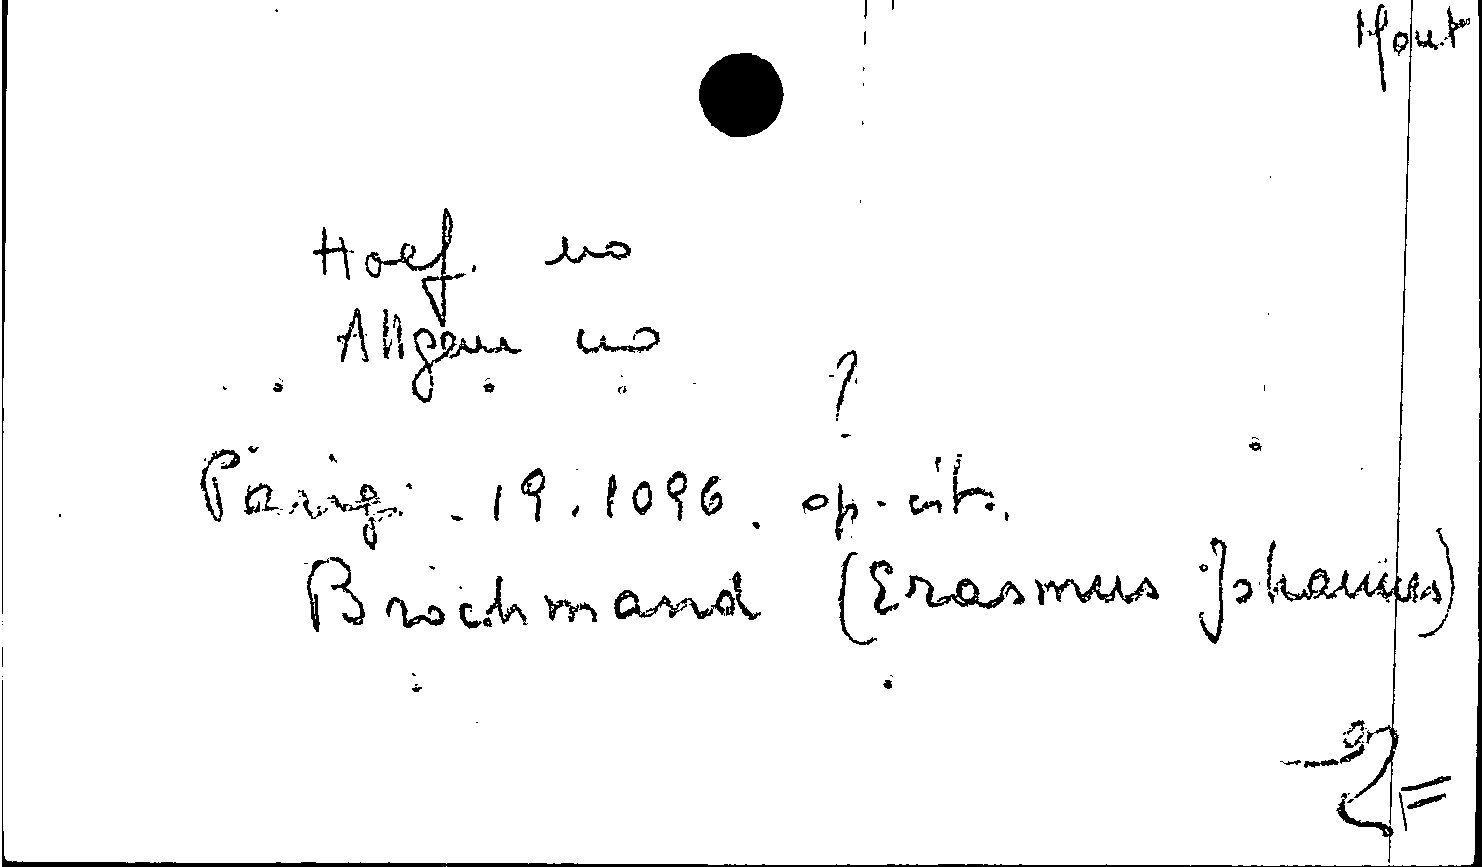 Mont
Hoef. no
Allgem no
?
Parigi. 19. 1096. op. cit.
Brochmand (Erasmus Johannes)